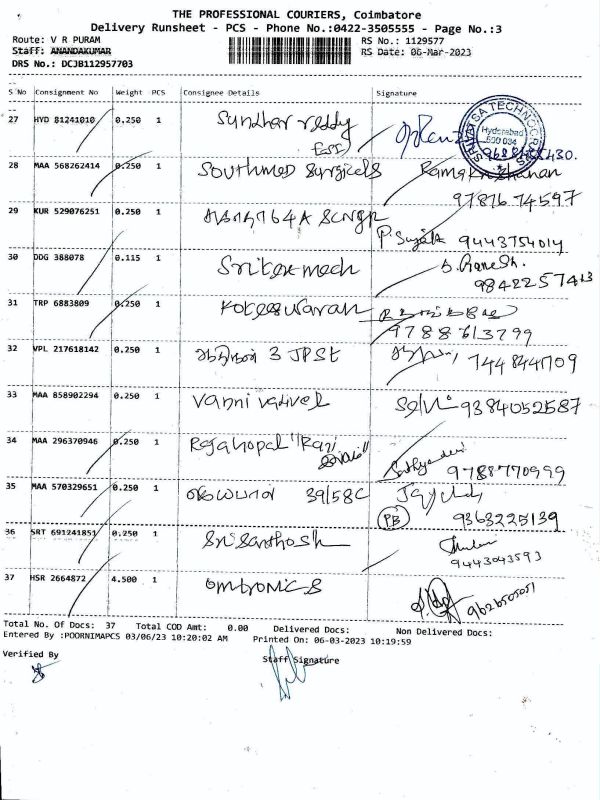 THE PROFESSIONAL COURIERS, Coimbatore
Delivery Runsheet - PCS - Phone No.:0422-3505555 - Page No.:3
Route: V R PURAM
RS No.: 1129577
Staff: ANANDAKUMAR
RS Date: 06-Mar-2023
DRS No.: DCJB112957703
S No Consignment No Weight PCS Consignee Details Signature
27 HYD 81241010 0.250 1 Sundhar reddy
ESI
Hyderabad
500 034
28 MAA 568262414 0.250 1 Southmed surgicals Ramakrishanan
97876 74597
29 KUR 529076251 0.250 1
P. Sujatha 9443754014
30 DDG 388078 0.115 1 Sritex mech
31 TRP 6883809 0.250 1 Koteeswaran
9788613799
32 VPL 217618142 0.250 1 3 JPSE 7448441709
33 MAA 858902294 0.250 1 Vanni vativel 9384052587
34 MAA 296370946 0.250 1 Rajagopal "Raji
Sathyadevi
9788770999
35 MAA 570329651 0.250 1 39/58C
PB 9363225139
36 SRT 691241851 0.250 1 Sri Santhosh
9443043593
37 HSR 2664872 4.500 1 Omtronics
9626505051
Total No. Of Docs: 37 Total COD Amt: 0.00 Delivered Docs: Non Delivered Docs:
Entered By :POORNIMAPCS 03/06/23 10:20:02 AM Printed On: 06-03-2023 10:19:59
Verified By
Staff Signature